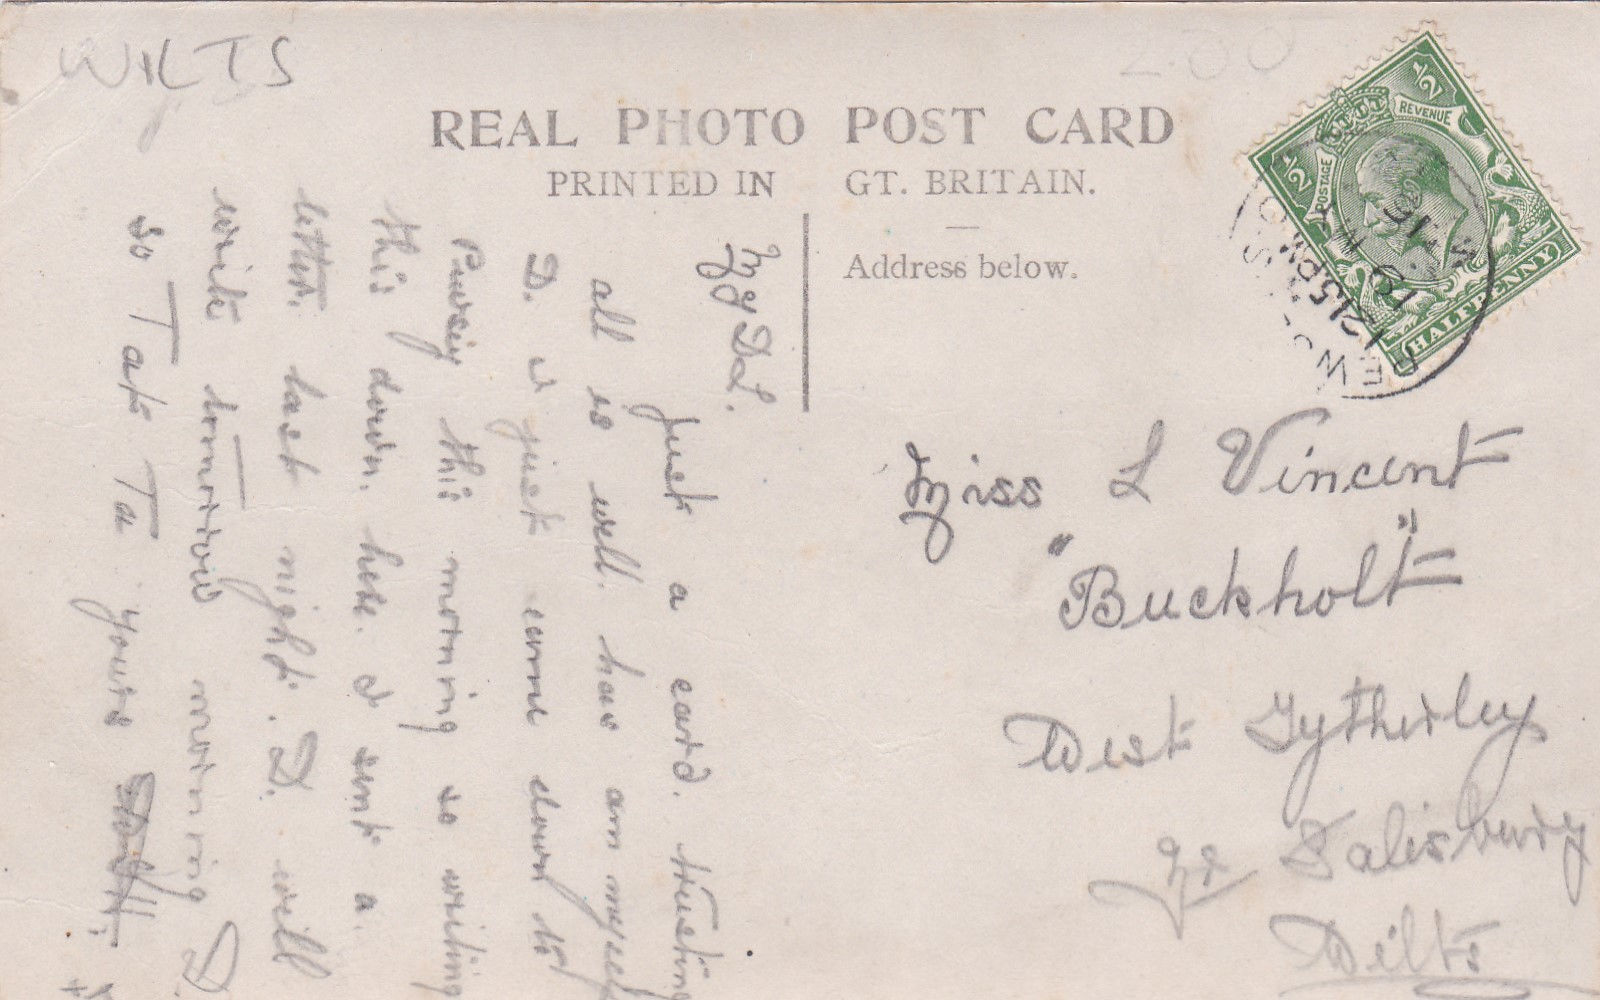 WILTS
2.00
REAL PHOTO POST CARD
PRINTED IN GT. BRITAIN.
Address below.
½ REVENUE
½ POSTAGE
HALFPENNY
PEWS
12.15PM
19
16
Miss L Vincent
"Buckholt"
West Tytherley
Nr Salisbury
Wilts
My DL.
Just a card. trusting
all is well. has am myself
D. is just come down to
Pewsey this morning so writing
this down. here. I sent a.
letter. last night. D. will
write tomorrow morning D.
so Tat Ta yours